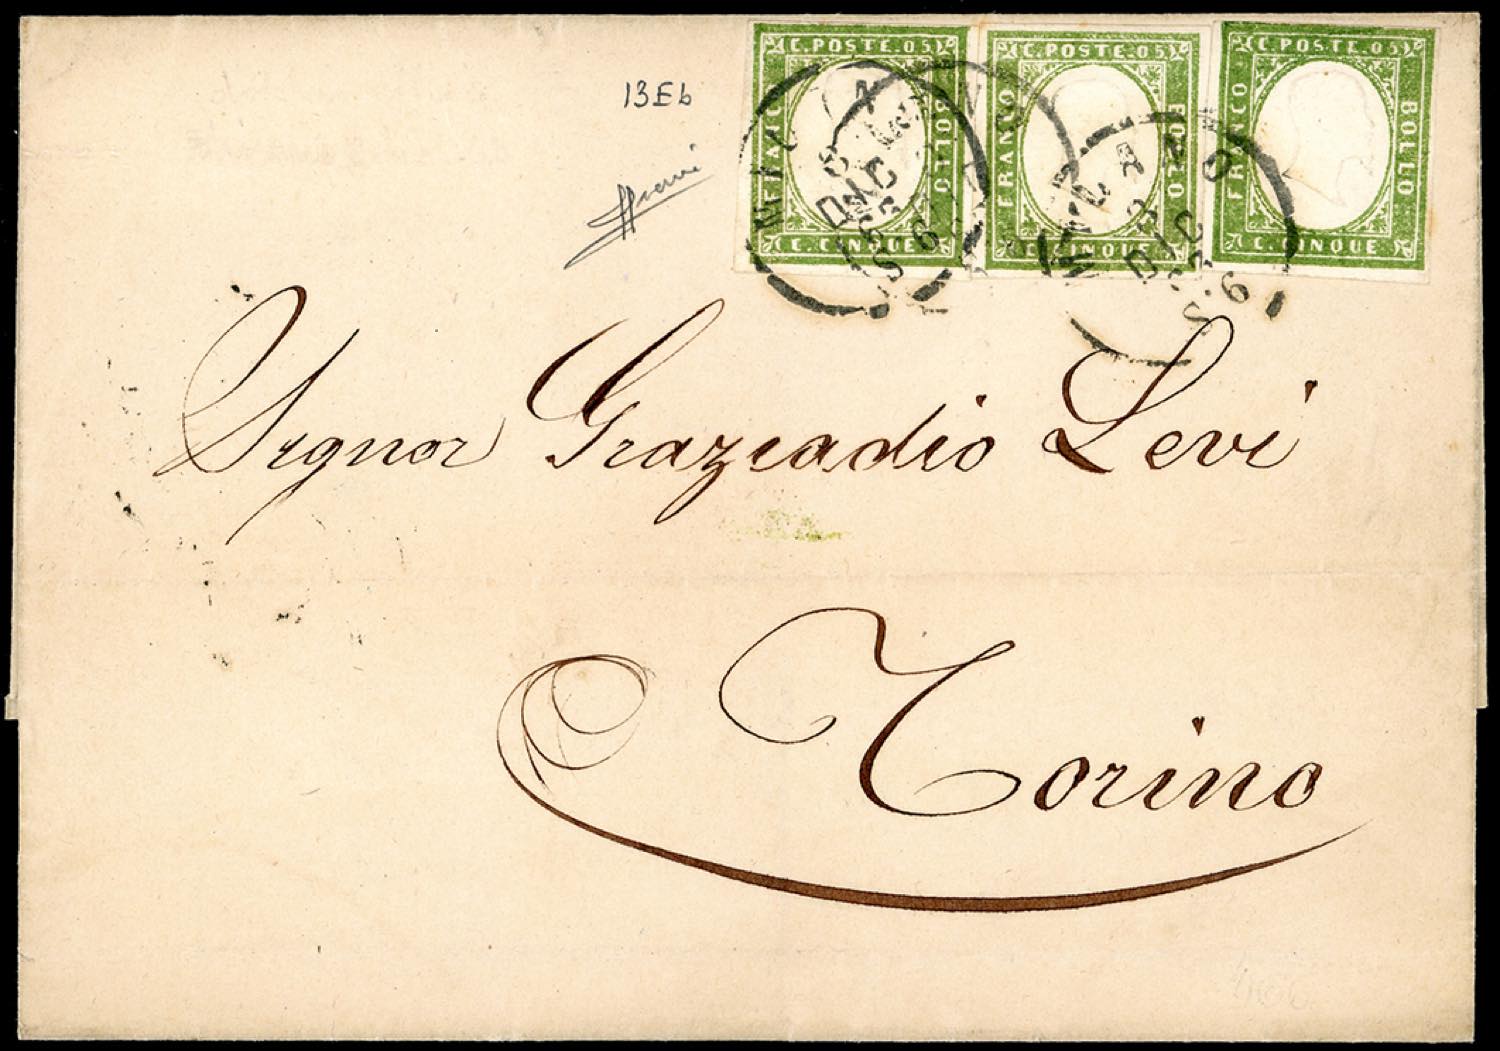 C. POSTE. 05
FRANCO
BOLLO
C. CINQUE
C. POSTE. 05
FRANCO
BOLLO
C. CINQUE
C. POSTE. 05
FRANCO
BOLLO
C. CINQUE
13Eb
MILANO
MILANO
MILANO
Signor Graziadio Levi
Torino